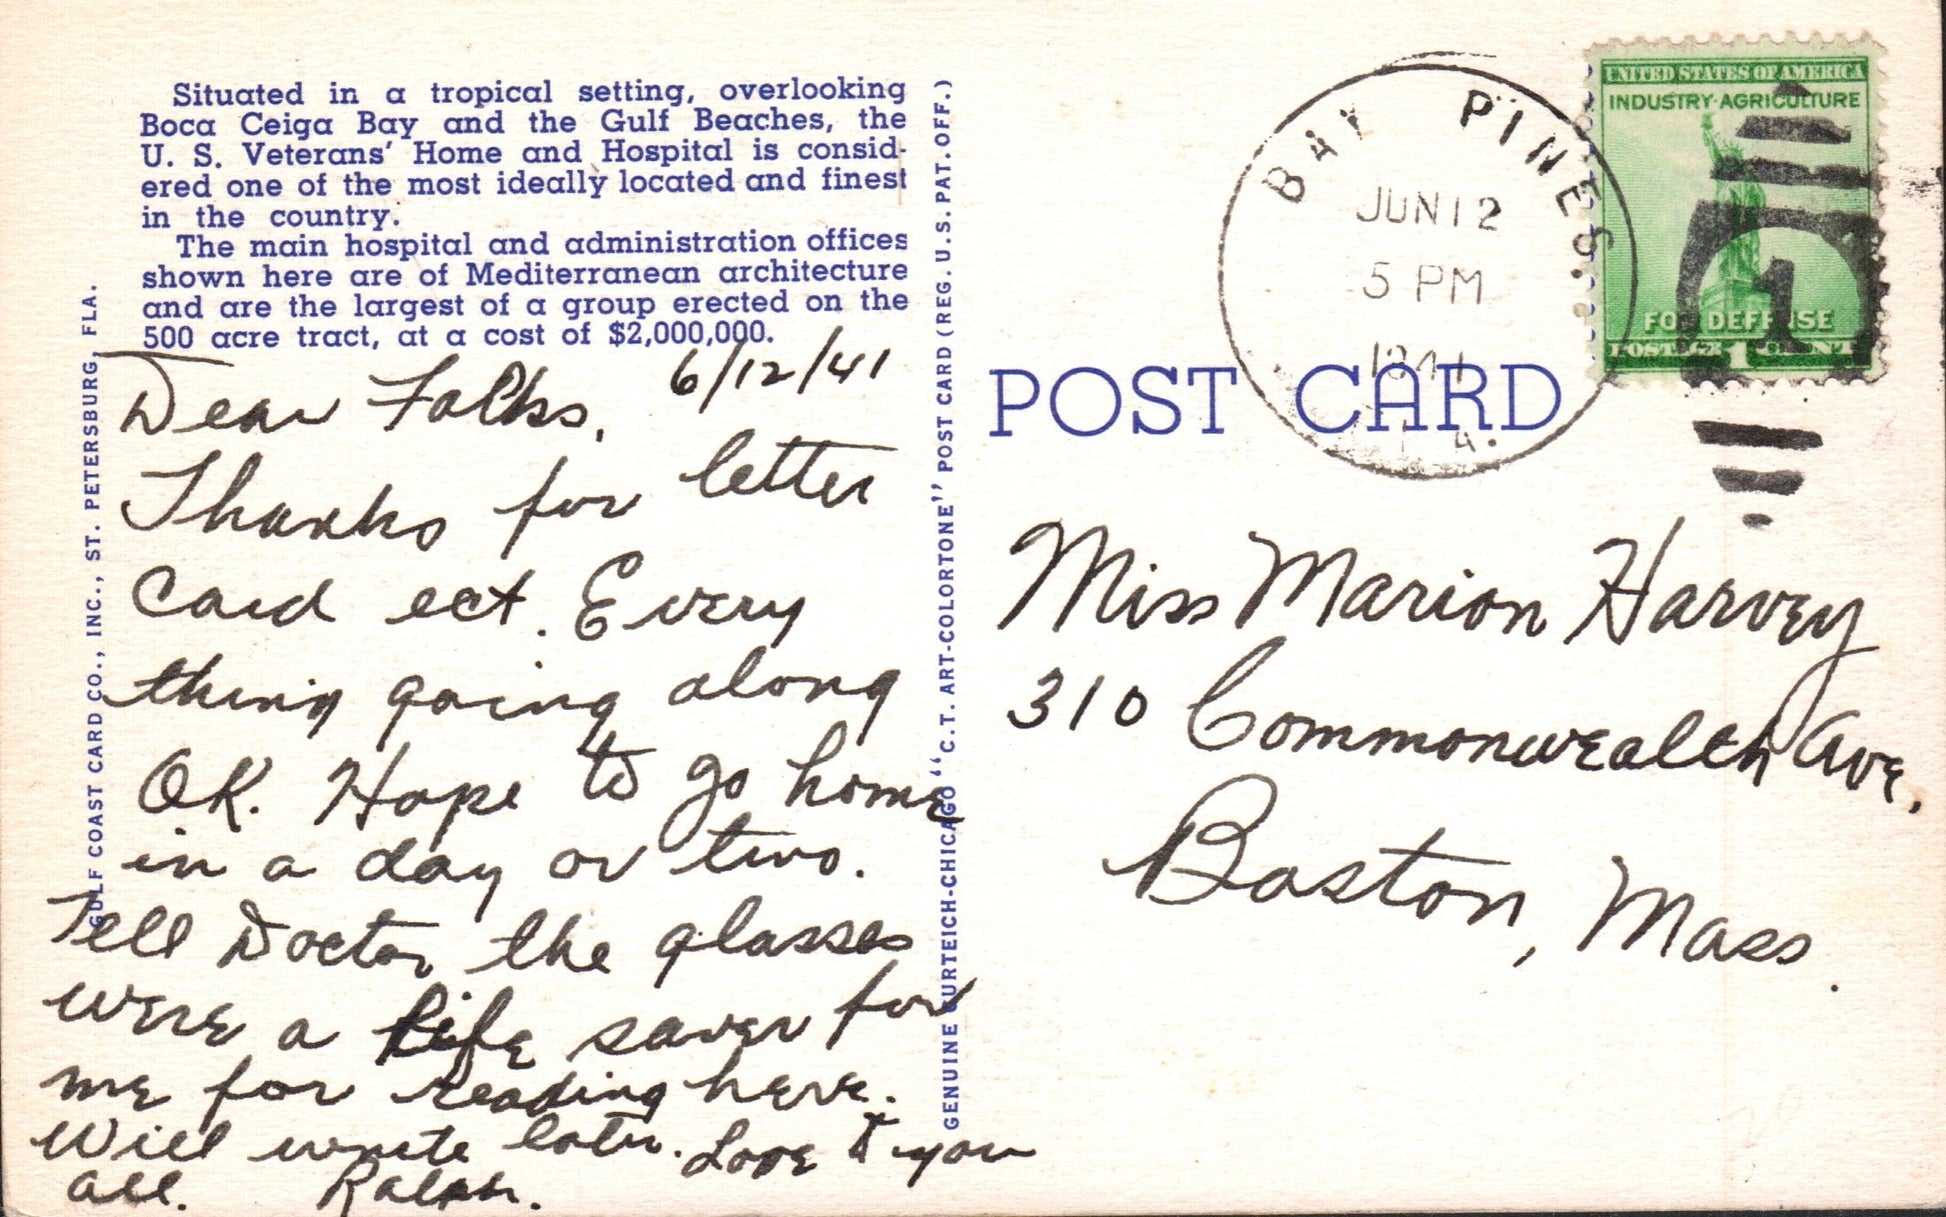 Situated in a tropical setting, overlooking
Boca Ceiga Bay and the Gulf Beaches, the
U. S. Veterans' Home and Hospital is consid-
ered one of the most ideally located and finest
in the country.
The main hospital and administration offices
shown here are of Mediterranean architecture
and are the largest of a group erected on the
500 acre tract, at a cost of $2,000,000.
6/12/41
Dear Folks,
Thanks for letter
Card ect. Every
thing going along
OK. Hope to go home
in a day or two.
Tell Doctor the glasses
were a life saver for
me for reading here.
Will write later. Love to you
all. Ralph.
GULF COAST CARD CO., INC., ST. PETERSBURG, FLA.
GENUINE CURTEICH-CHICAGO "C. T. ART-COLORTONE" POST CARD (REG. U. S. PAT. OFF.)
POST CARD
BAY PINES.
JUN 12
5 PM
1941
UNITED STATES OF AMERICA
INDUSTRY·AGRICULTURE
FOR DEFENSE
POSTAGE 1 CENT
1
Miss Marion Harvey
310 Commonwealth Ave,
Boston, Mass.